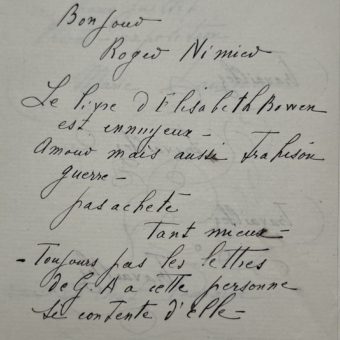 Bonjour
Roger Nimier
Le livre d'Elisabeth Bowen
est ennuyeux -
Amour mais aussi trahison
guerre -
pas acheté
tant mieux -
- Toujours pas les lettres
de G. A a cette personne
se contente d'elle -